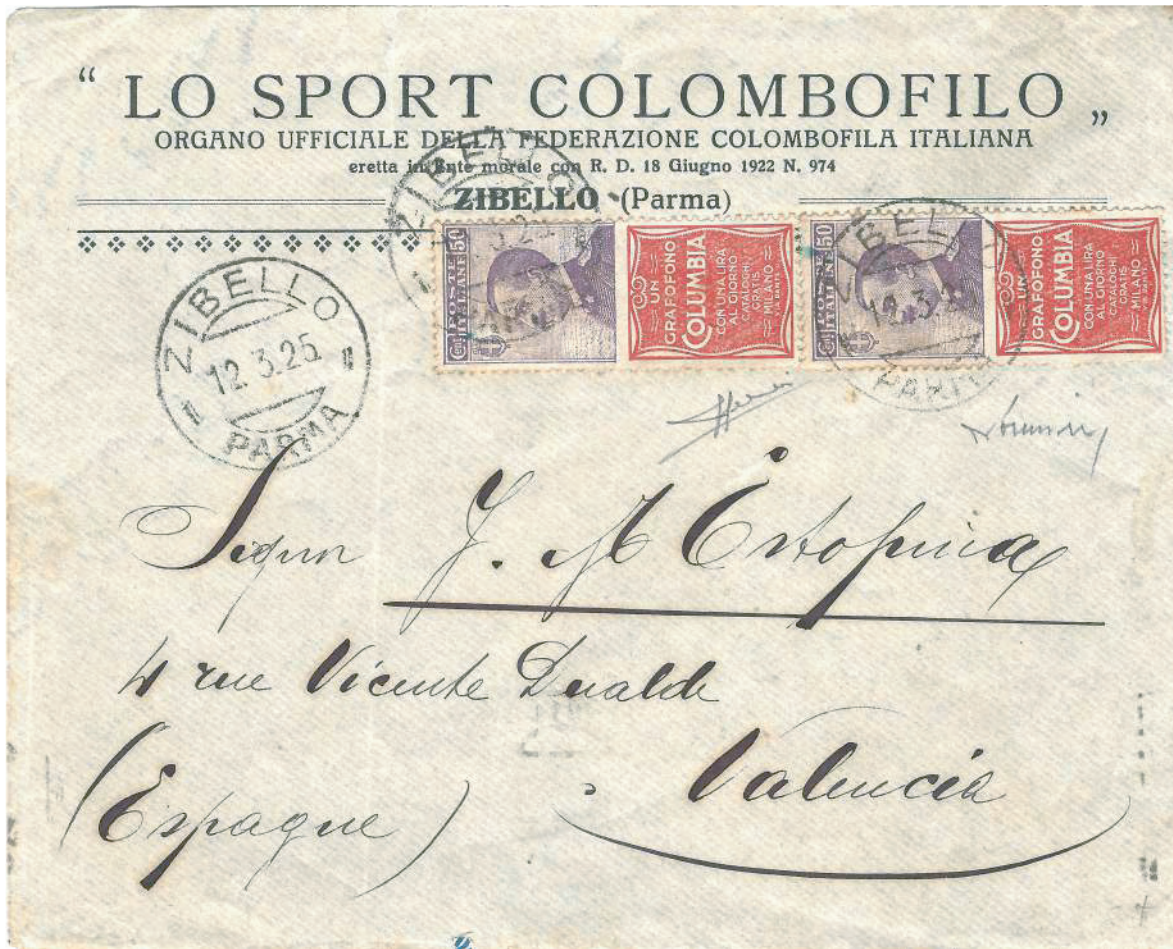 “ LO SPORT COLOMBOFILO „
ORGANO UFFICIALE DELLA FEDERAZIONE COLOMBOFILA ITALIANA
eretta in Ente morale con R. D. 18 Giugno 1922 N. 974
ZIBELLO (Parma)
ZIBELLO
POSTE ITALIANE
Cent 50
UN
GRAFOFONO
COLUMBIA
CON UNA LIRA
AL GIORNO
CATALOGHI
GRATIS
MILANO
VIA DANTE
ZIBELLO
12.3.25
PARMA
POSTE ITALIANE
Cent 50
UN
GRAFOFONO
COLUMBIA
CON UNA LIRA
AL GIORNO
CATALOGHI
GRATIS
MILANO
VIA DANTE
ZIBELLO
12.3.25
PARMA
Signor J. M Estopina
4 rue Vicente Dualde
Valencia
(Espagne)